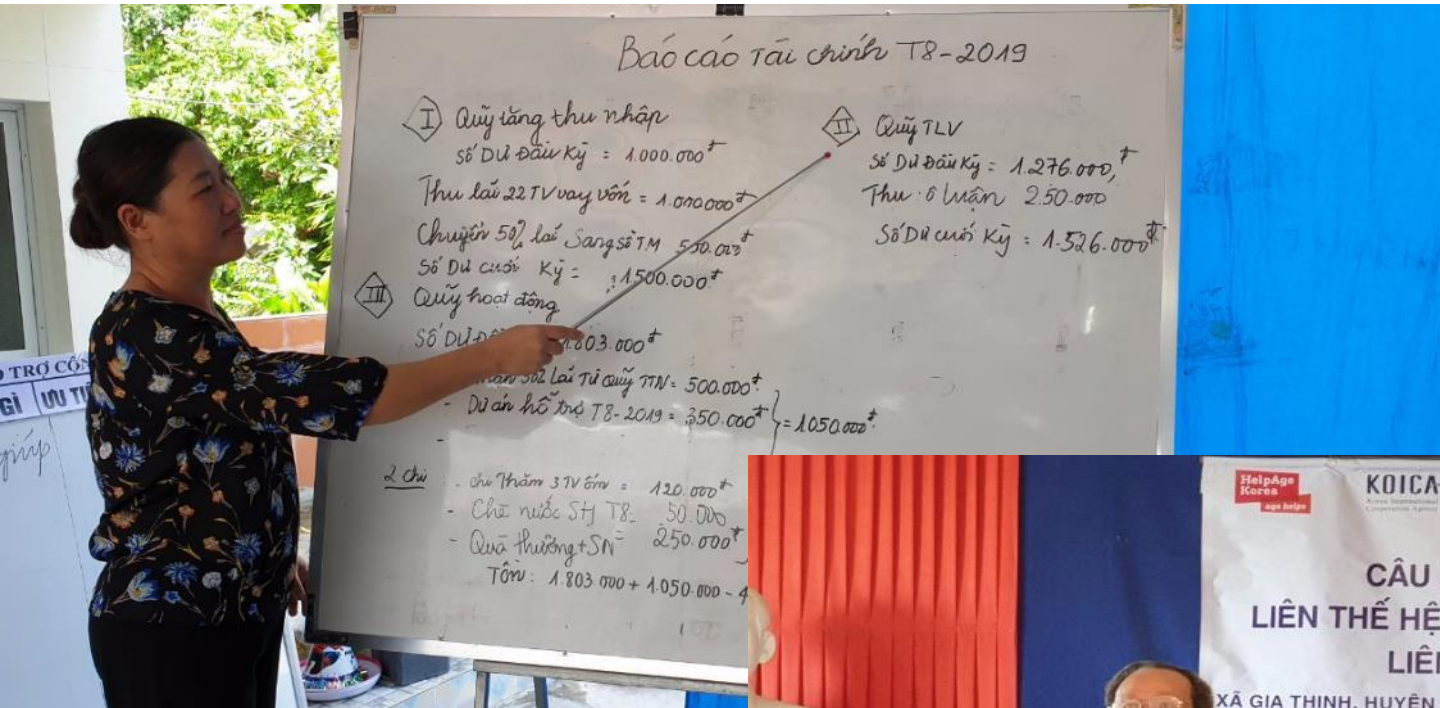 Báo cáo Tài chính T8-2019
I Quỹ tăng thu nhập
Số Dư Đầu Kỳ = 1.000.000đ
Thu lãi 22 TV vay vốn = 1.000.000đ
Chuyển 50% lãi Sang sổ TM 500.000đ
Số Dư cuối Kỳ = 1.500.000đ
II Quỹ TLV
Số Dư Đầu Kỳ = 1.276.000đ
Thu 2.50.000
Số Dư cuối Kỳ = 1.526.000đ
III Quỹ hoạt động
Số Dư 1.803.000đ
50% Lãi Từ Quỹ TTN = 500.000đ
- Dự án hỗ trợ T8-2019 = 350.000đ
= 1050.000đ
2 chi
- chi Thăm 3 TV ốm = 120.000đ
- Chè nước SH T8 = 50.000
- Quà thưởng + SN = 250.000đ
TỒN: 1.803.000 + 1.050.000 - 4
TRỢ
GÌ
giúp
HelpAge
Korea
age helps
KOICA
Korea International
Cooperation Agency
CÂU
LIÊN THẾ HỆ
XÃ GIA THỊNH, HUYỆN